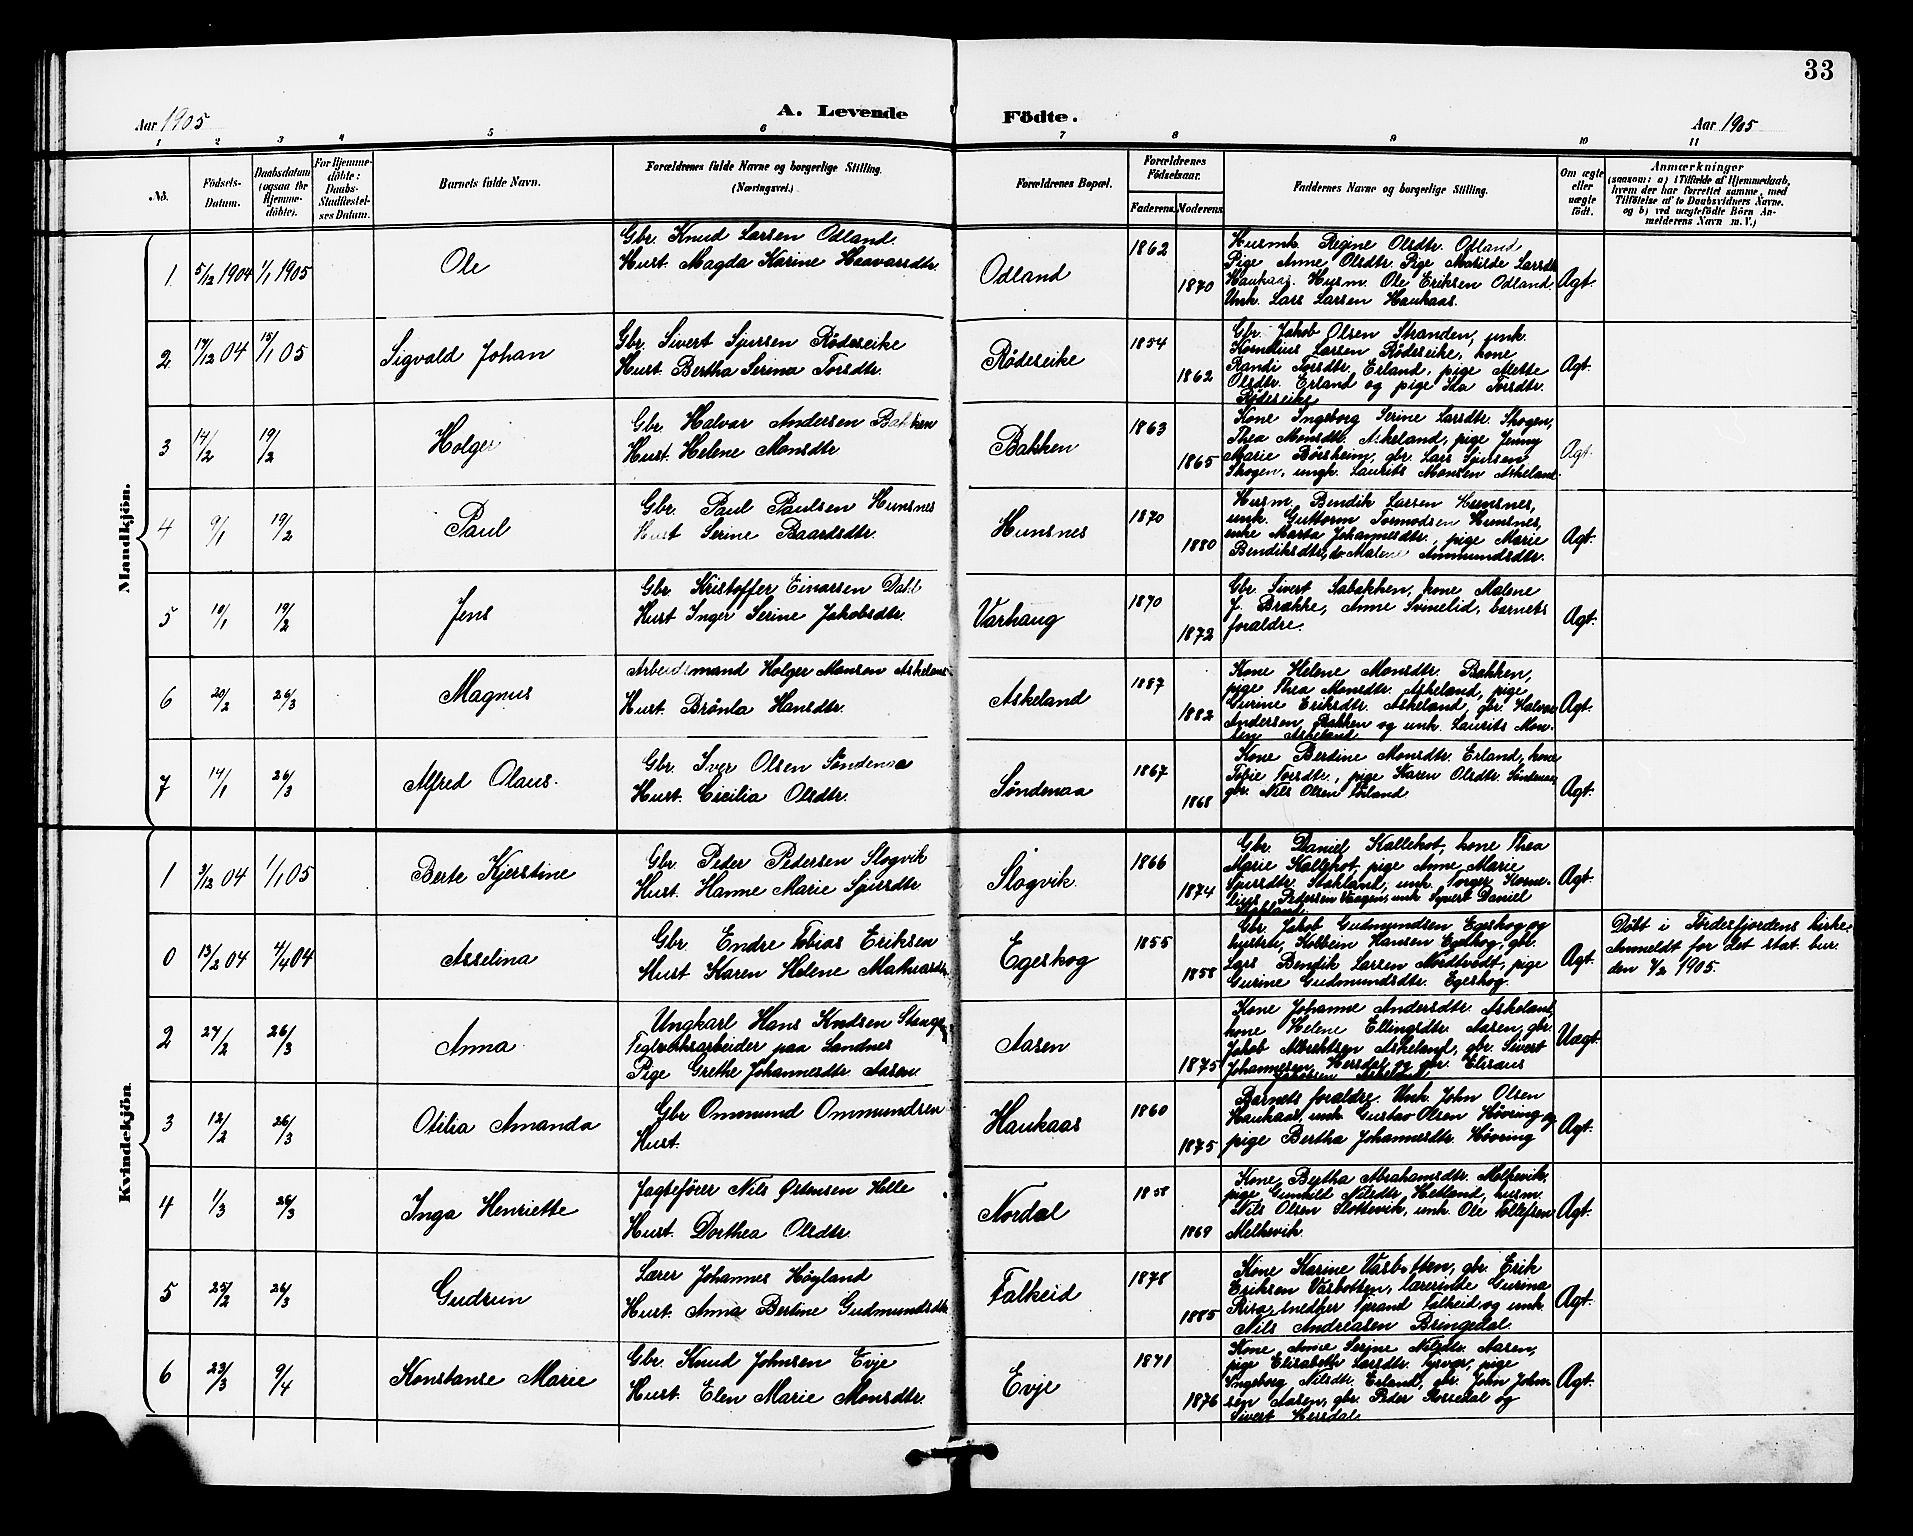 33
Aar 1905
A. Levende Födte.
Aar 1905
1 2 3 4 5 6 7 8 9 10 11
No.
Födsels-Datum.
Daabsdatum (ogsaa for Hjemme-döbte).
For Hjemme-döbte: Daabs-Stadfæstel-ses Datum.
Barnets fulde Navn.
Forældrenes fulde Navne og borgerlige Stilling. (Næringsvei.)
Forældrenes Bopæl.
Forældrenes Födselsaar.
Faderens. Moderens.
Faddernes Navne og borgerlige Stilling.
Om ægte eller uægte födt.
Anmærkninger
(saasom: a) i Tilfælde af Hjemmedaab,
hvem der har forrettet samme, med
Tilföielse af to Daabsvidners Navne.
og b) ved uægtefödte Börn An-
melderens Navn m. V.)
Mandkjön.
1 5/12 1904 1/1 1905 Ole
Gbr. Knud Larsen Odland.
Hust. Magda Karine Haavarsdtr.
Odland 1862 1870
Husmk. Regine Olsdtr. Odland
Pige Anne Olsdtr. Pige Matilde Larsdtr.
Haukaas. Husm. Ole Eriksen Odland.
Unk. Lars Larsen Haukaas.
Ægt.
2. 17/12 04 15/1 05 Sigvald Johan
Gbr. Sivert Sjursen Rødeseike
Hust. Bertha Serina Torsdtr.
Rødeseike 1854 1862
Gbr. Jakob Olsen Stranden, unk.
Kornelius Larsen Rødeseike, kone
Randi Torsdtr. Erland, pige Mette
Olsdtr. Erland og pige Ida Torsdtr.
Rødeseike
Ægt.
3 14/2 19/2 Holger
Gbr. Halvar Andersen Bakken
Hust. Helene Monsdtr
Bakken 1863 1865
Kone Ingeborg Serine Larsdtr. Skogen,
Thea Monsdtr. Askeland, pige Jenny
Marie Børsheim, gbr. Lars Sjursen
Skogen, ungk. Laurits Monsen Askeland.
Ægt.
4 9/1 19/2 Paul
Gbr. Paul Paulsen Hunsnes
Hust Serine Baardsdtr.
Hunsnes 1870 1880
Husm. Bendik Larsen Hunsnes,
unk. Guttorm Tormodsen Hunsnes,
enke Marta Johannesdtr., pige Marie
Bendiksdtr, do Malene Ammundsdtr.
Ægt.
5 10/1 19/2 Jens
Gbr. Kristoffer Einarsen Dahl
Hust Inger Serine Jakobsdtr.
Varhaug 1870 1872
Gbr. Sivert Sabakken, kone Malene
J. Brække, Anne Svinelid, barnets
foraldre.
Ægt.
6 20/2 26/3 Magnus
Arbeidsmand Holger Monsen Askeland
Hust. Brønla Hansdtr.
Askeland 1887 1882
Kone Helene Monsdtr. Bakken,
pige Thea Monsdtr. Askeland, pige
Gurine Eriksdtr. Askeland, gbr. Halvar
Andersen Bakken og unk. Laurits Mon-
sen Askeland
Ægt.
7 14/1 26/3 Alfred Olaus.
Gbr. Iver Olsen Søndenaa
Hust. Cicilia Olsdtr.
Søndenaa 1867 1868
Kone Bertine Monsdtr. Erland, kone
Tofie Torsdtr., pige Karen Olsdtr. Søndenaa,
gbr. Nils Olsen Førland
Ægt.
Kvindekjön
1 3/12 04 1/1 05 Berte Kjerstine
Gbr Peder Pedersen Slogvik
Hust. Hanne Marie Sjursdtr
Slogvik. 1866 1874
Gbr. Daniel Kallekot, kone Thea
Marie Kallekot, pige Anne Marie
Sjursdtr. Stakland, unk. Torger Korne-
lius Pedersen Vaagen, unk Syvert Daniel
Stakland
Ægt.
0 13/2 04 4/4 04 Asselina
Gbr Endre Tobias Eriksen
Hust Karen Helene Mathiasdtr.
Egeskog 1855 1858
Gbr. Jakob Gudmundsen Egeskog og
hustru, Kolbein Hansen Egeskog, gbr.
Lars Bendik Larsen Nordtvedt, pige
Gurine Gudmundsdtr. Egeskog.
Ægt.
Døbt i Førdesfjordens kirke.
Anmeldt for det stat. bur.
den 4/2 1905.
2 27/2 26/3 Anna
Ungkarl Hans Knudsen Stange
Teglverksarbeider paa Sandnes
Pige Grethe Johannesdtr Aasen
Aasen 1875
Kone Johanne Andersdtr. Askeland,
kone Helene Ellingsdtr. Aasen, gbr.
Jakob Albrektsen Askeland, gbr. Sivert
Johannesen Hersdal og gbr. Elisæus
Jakobsen Askeland
Uægt.
3 12/2 26/3 Otilia Amanda
Gbr Ommund Ommundsen
Hust.
Haukaas 1860 1875
Barnets foraldre. Unk. John Olsen
Haukaas, unk Gustav Olsen Høvring og
pige Bertha Johannesdtr. Høvring
Ægt.
4 1/3 26/3 Inga Henriette
Jagtefører Nils Østensen Halle
Hust. Dorthea Olsdtr.
Nordal 1858 1869
Kone Bertha Abrahamsdtr. Melkevik,
pige Gunhild Nilsdtr. Hetland, husm.
Nils Olsen Slottevik, unk. Ole Tollefsen
Melkevik.
Ægt.
5 25/2 26/3 Gudrun
Lærer Johannes Høyland
Hust. Anna Bertine Gudmundsdtr
Falkeid 1878 1885
Kone Karine Vasbotten, gbr. Erik
Eriksen Vasbotten, lærerinde Gurina
Risa, snedker Tjerand Falkeid og unk.
Nils Andreasen Bringedal.
Ægt.
6 23/3 9/4 Konstanse Marie
Gbr. Knud Johnsen Evje
Hust. Elen Marie Monsdtr.
Evje 1871 1876
Kone Anne Serine Nilsdtr. Aasen,
pige Elisabeth Larsdtr. Tysvær, pige
Ingeborg Nilsdtr. Erland, gbr. John John-
sen Aasen, gbr. Peder Rossedal og
Sivert Hersdal.
Ægt.